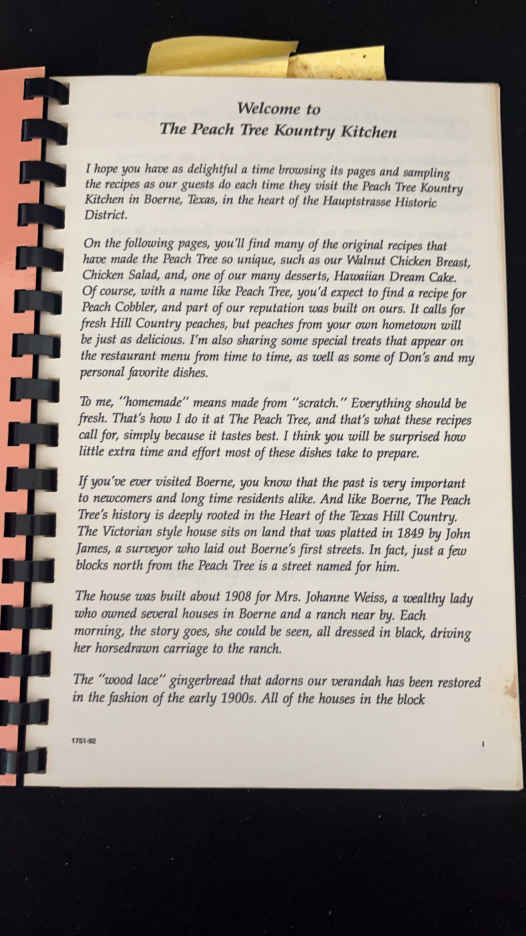 Welcome to
The Peach Tree Kountry Kitchen
I hope you have as delightful a time browsing its pages and sampling
the recipes as our guests do each time they visit the Peach Tree Kountry
Kitchen in Boerne, Texas, in the heart of the Hauptstrasse Historic
District.
On the following pages, you'll find many of the original recipes that
have made the Peach Tree so unique, such as our Walnut Chicken Breast,
Chicken Salad, and, one of our many desserts, Hawaiian Dream Cake.
Of course, with a name like Peach Tree, you'd expect to find a recipe for
Peach Cobbler, and part of our reputation was built on ours. It calls for
fresh Hill Country peaches, but peaches from your own hometown will
be just as delicious. I'm also sharing some special treats that appear on
the restaurant menu from time to time, as well as some of Don's and my
personal favorite dishes.
To me, "homemade" means made from "scratch." Everything should be
fresh. That's how I do it at The Peach Tree, and that's what these recipes
call for, simply because it tastes best. I think you will be surprised how
little extra time and effort most of these dishes take to prepare.
If you've ever visited Boerne, you know that the past is very important
to newcomers and long time residents alike. And like Boerne, The Peach
Tree's history is deeply rooted in the Heart of the Texas Hill Country.
The Victorian style house sits on land that was platted in 1849 by John
James, a surveyor who laid out Boerne's first streets. In fact, just a few
blocks north from the Peach Tree is a street named for him.
The house was built about 1908 for Mrs. Johanne Weiss, a wealthy lady
who owned several houses in Boerne and a ranch near by. Each
morning, the story goes, she could be seen, all dressed in black, driving
her horsedrawn carriage to the ranch.
The "wood lace" gingerbread that adorns our verandah has been restored
in the fashion of the early 1900s. All of the houses in the block
1751-92
I